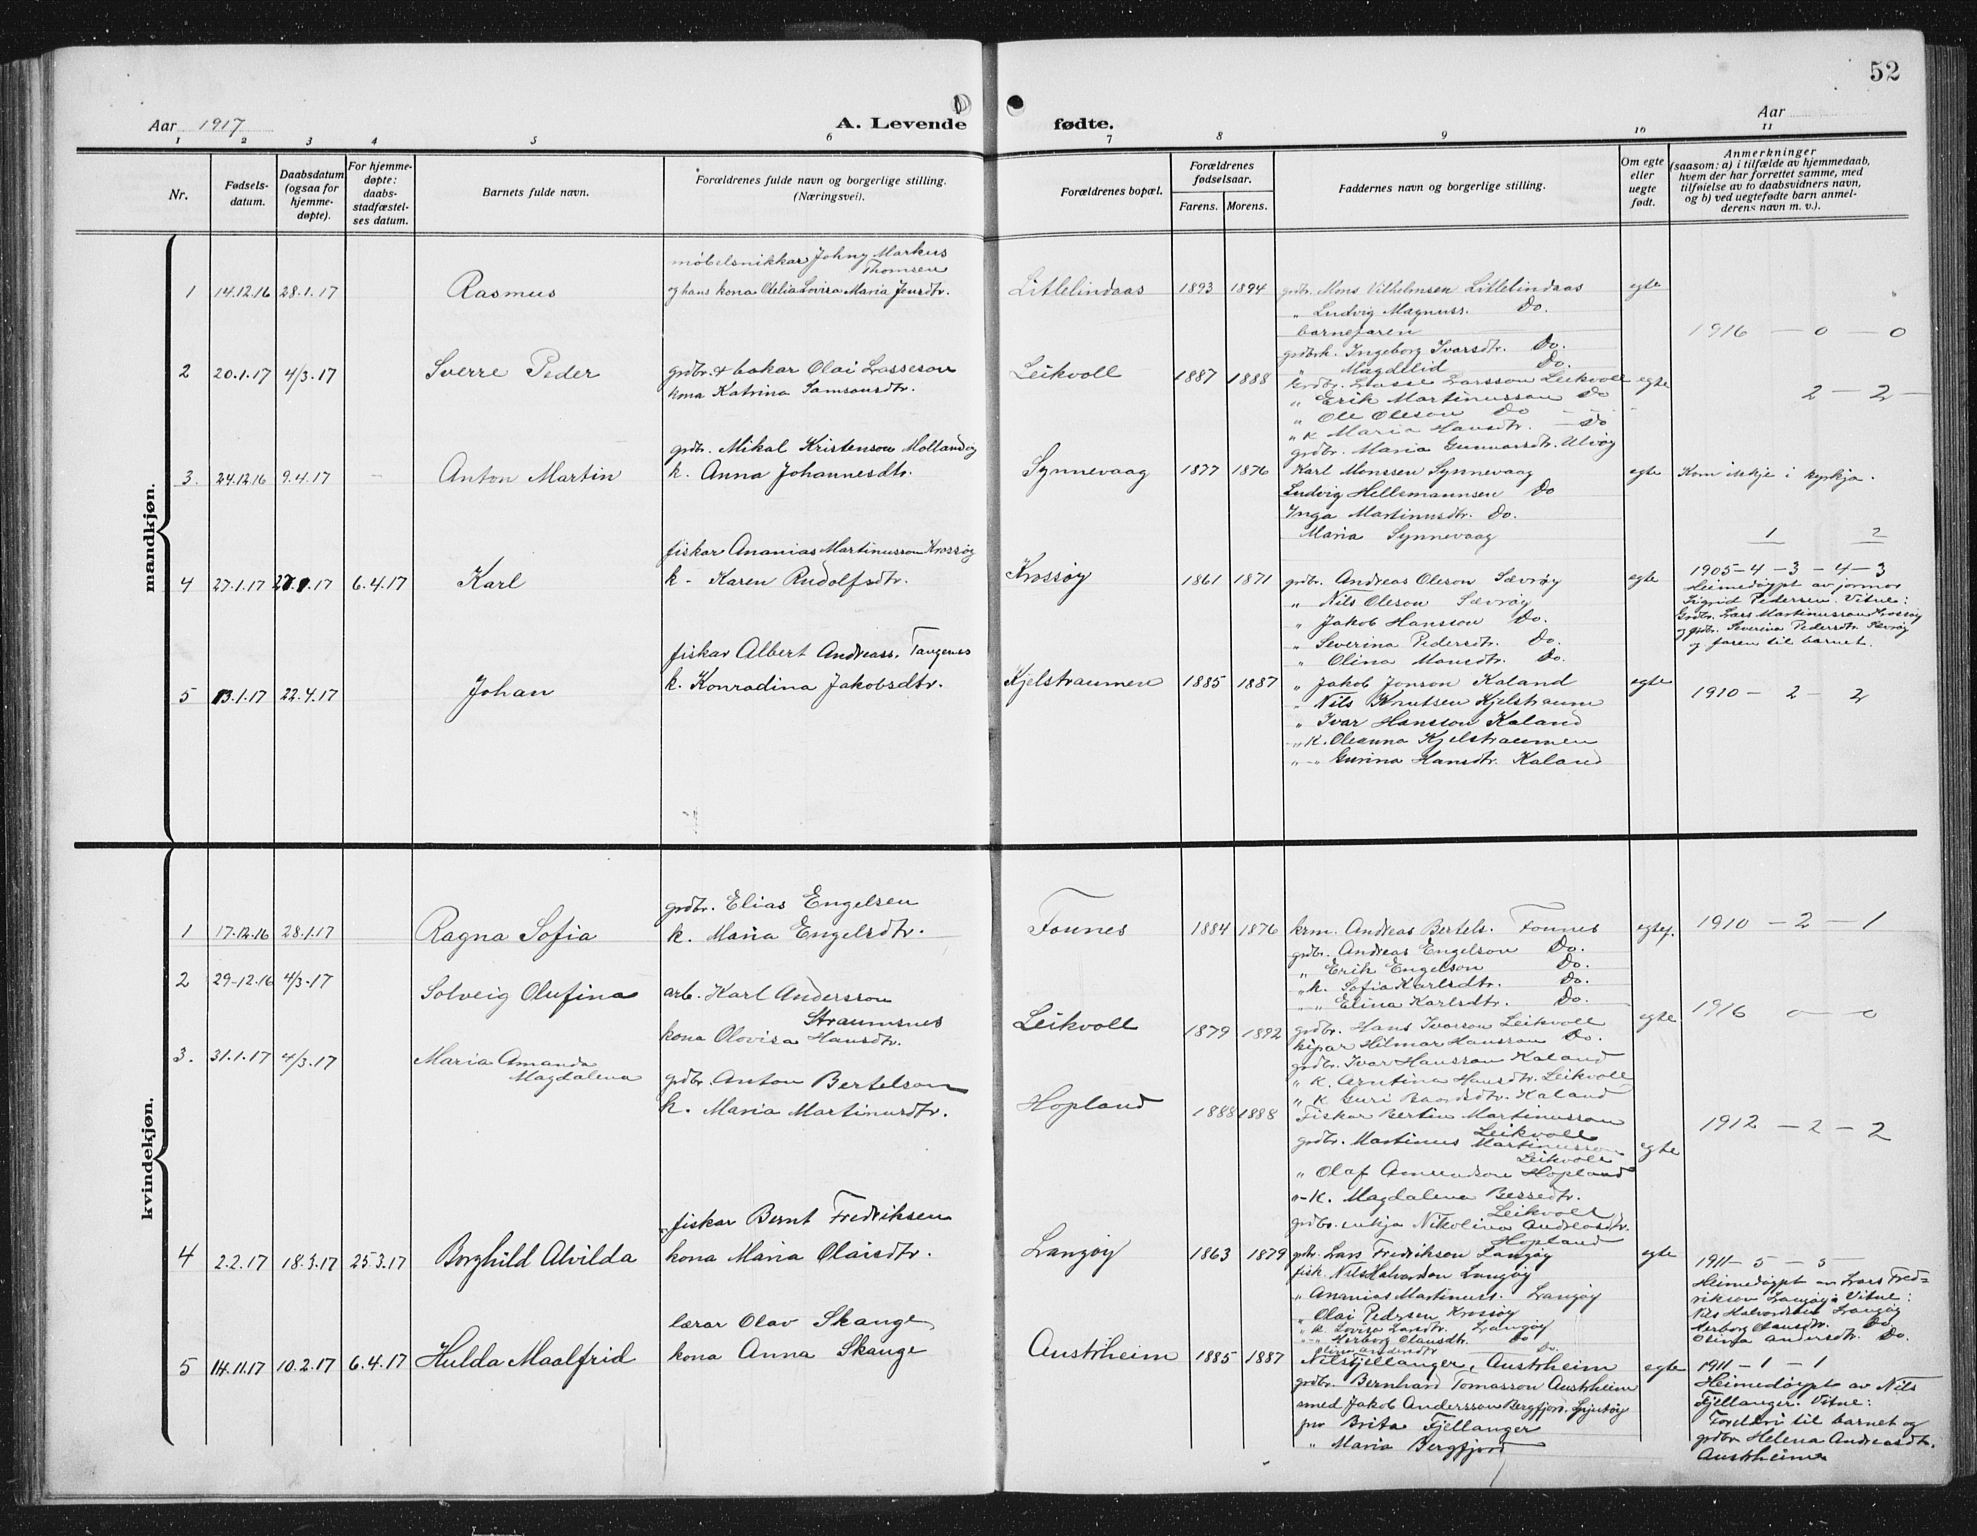 52
Aar 1917
A. Levende fødte.
Aar
1 2 3 4 5 6 7 8 9 10 11
Nr.
Fødsels-
datum.
Daabsdatum
(ogsaa for
hjemme-
døpte).
For hjemme-
døpte:
daabs-
stadfæstel-
ses datum.
Barnets fulde navn.
Forældrenes fulde navn og borgerlige stilling.
(Næringsvei).
Forældrenes bopæl.
Forældrenes
fødselsaar.
Farens. Morens.
Faddernes navn og borgerlige stilling.
Om egte
eller
uegte
født.
Anmerkninger
(saasom: a) i tilfælde av hjemmedaab,
hvem der har forrettet samme, med
tilføielse av to daabsvidners navn,
og b) ved uegtefødte barn anmel-
derens navn m. v.).
mandkjøn.
1 14.12.16 28.1.17 Rasmus
møbelsnikkar Johny Markus
Thomsen
og hans kona Olelia Lovisa Maria Jensdtr.
Litlelindaas 1893 1894
grdbr. Mons Vilhelmsen Litlelindaas
" Ludvig Magnuss. Do.
barnefaren
grdbrk. Ingeborg Ivarsdtr. Do.
" Magdelid Do.
egte
1916 - 0 - 0
2 20.1.17 4/3.17 Sverre Peder
grdbr. & bakar Olai Lasseson
kona Katrina Samsonsdtr.
Leikvoll 1887 1888
grdbr. Lasse Larsson Leikvoll
" Erik Martinusson Do
" Ole Oleson Do
" k Maria Hansdtr. - Do
grdbr. Maria Gunnarsdtr. Utvøy
egte
2 - 2 -
3. 24.12.16 9.4.17 - Anton Martin
grdbr. Mikal Kristenson Mollandøy
k. Anna Johannesdtr.
Synnevaag 1877 1876
Karl Monssen Synnevaag
Ludvig Hellemannsen Do
Inga Martinusdtr. Do.
Maria Synnevaag
egte
Kom ikkje i kyrkja.
1 2
4 27.1.17 27.1.17 6.4.17 Karl
fiskar Ananias Martinusson Krossøy
k. Karen Rudolfsdtr.
Krossøy 1861 1871
grdbr. Andreas Oleson Sævrøy
" Nils Oleson Sævrøy
" Jakob Hansson Do.
" Severina Pedersdtr. Do.
" Olina Monsdtr. Do.
egte
1905 - 4 - 3 - 4 - 3
Heimedøypt av jormor
Sigrid Pedersen. Vitne:
Grdbr. Lars Martinusson Krossøy
og grdbr. Severina Pedersdtr. Sævrøy
og faren til barnet.
5 13.1.17 22.4.17 Johan
fiskar Albert Andreass. Tangenes
k. Konradina Jakobsdtr.
Kjelstraumen 1885 1887
" Jakob Jonson Kaland
" Nils Knutsen Kjelstraum
" Ivar Hansson Kaland
" k. Oleanna Kjelstraumen
" - Gurina Hansdtr. Kaland
egte
1910 - 2 - 2
kvindekjøn.
1 17.12.16 28.1.17 Ragna Sofia
grdbr. Elias Engelsen
k. Maria Engelsdtr.
Fonnes 1884 1876
krm. Andreas Bertels. Fonnes
grdbr. Andreas Engelson Do.
" Erik Engelson Do.
" k. Sofia Karlsdtr. Do.
" Elina Karlsdtr. Do.
egtef.
1910 - 2 - 1
2 29-12.16 4/3.17 Solveig Olufina
arb. Karl Andersson
Straumsnes
kona Olovisa Hansdtr.
Leikvoll 1879 1892
grdbr. Hans Ivarson Leikvoll
kipar Hilmar Hansson Do.
grdbr. Ivar Hansson Kaland
" k. Arntina Hansdtr. Leikvoll
" k Guri Baardsdtr. Kaland
egte
1916 0 - 0
3. 31.1.17 4/3.17 Maria Amanda
Magdalena
grdbr. Anton Bertelson
k. Maria Martinusdtr.
Hopland 1888 1888
Fiskar Bertin Martinusson
Leikvoll
grdbr. Martinus Martinusson
Leikvoll
" Olaf Amundson Hopland
" - K. Magdalena Bessedtr.
Leikvoll
grdbr. enkja Nikolina Andreasdtr.
Hopland
egte
1912 - 2 - 2
4 2.2.17 18.3.17 25.3.17 Borghild Alvilda
fiskar Bernt Fredriksen
kona Maria Olaisdtr.
Langøy 1863 1879
grbr. Lars Fredriksen Langøy
fisk. Nils Halvordsen Langøy
" Ananias Martinuss. Langøy
" Olai Pedersen Krossøy
" k. Lovisa Larsdtr. Langøy
" Herborg Olausdtr. Do
Olina Andersdtr Do.
egte
1911 - 5 - 5 -
Heimedøypt av Lars Fred=
riksen Langøy. Vitne:
Nils Halvordsen Langøy
Herborg Olausdtr. Do
Olina Andersdtr. Do.
5 14.11.17 10.2.17 6.4.17 Hulda Maalfrid
lærar Olav Skange
kona Anna Skange
Austrheim 1885 1887
Nils Fjellanger, Austrheim
grdbr. Bernhard Tomasson Austrheim
smed Jakob Andersson Bergfjord, Lyutøy
fru Brita Fjellanger
" Maria Bergfjord
egte
1911 - 1 - 1
Heimedøypt av Nils
Fjellanger. Vitne:
Foreldri til barnet og
grdbr. Helena Andreasdtr.
Austrheim